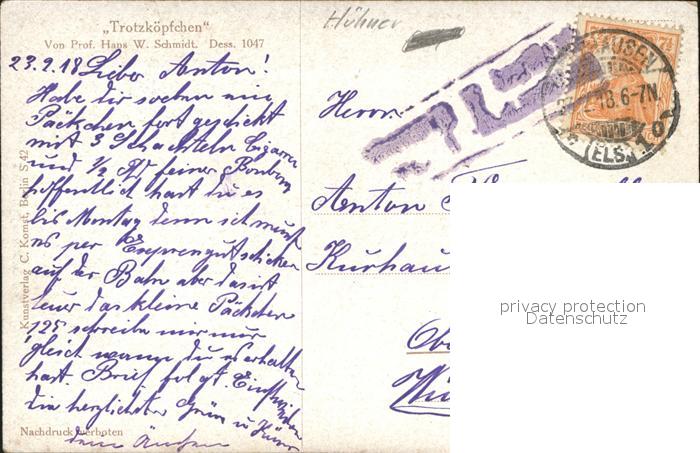 „Trotzköpfchen“
Von Prof. Hans W. Schmidt. Dess. 1047
Höhner
23.2.18 Lieber Anton!
Habe dir soeben ein
Päckchen fort geschickt
mit 3 Schachteln Cigarren
und 1/2 Pfd feiner Bonbons
hoffentlich hast du es
bis Montag denn ich mußt
es per Expressgut schicken
auf der Bahn aber das ist
teuer das kleine Päckchen
125 schreibe mir nur
gleich wann du es erhalten
hast. Brief folgt. Einstweilen
die herzlichsten Grüße u Küsse
dein Änchen
Nachdruck verboten
Kunstverlag C. Komst, Berlin S. 42
Herrn
Anton
Kurhau
Ob
Wü
HAUSEN
2.18.6-7N.
(ELS.)
7½
privacy protection
Datenschutz